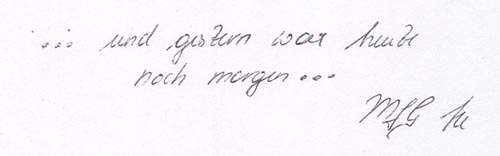 ... und gestern war heute
noch morgen...
MfG